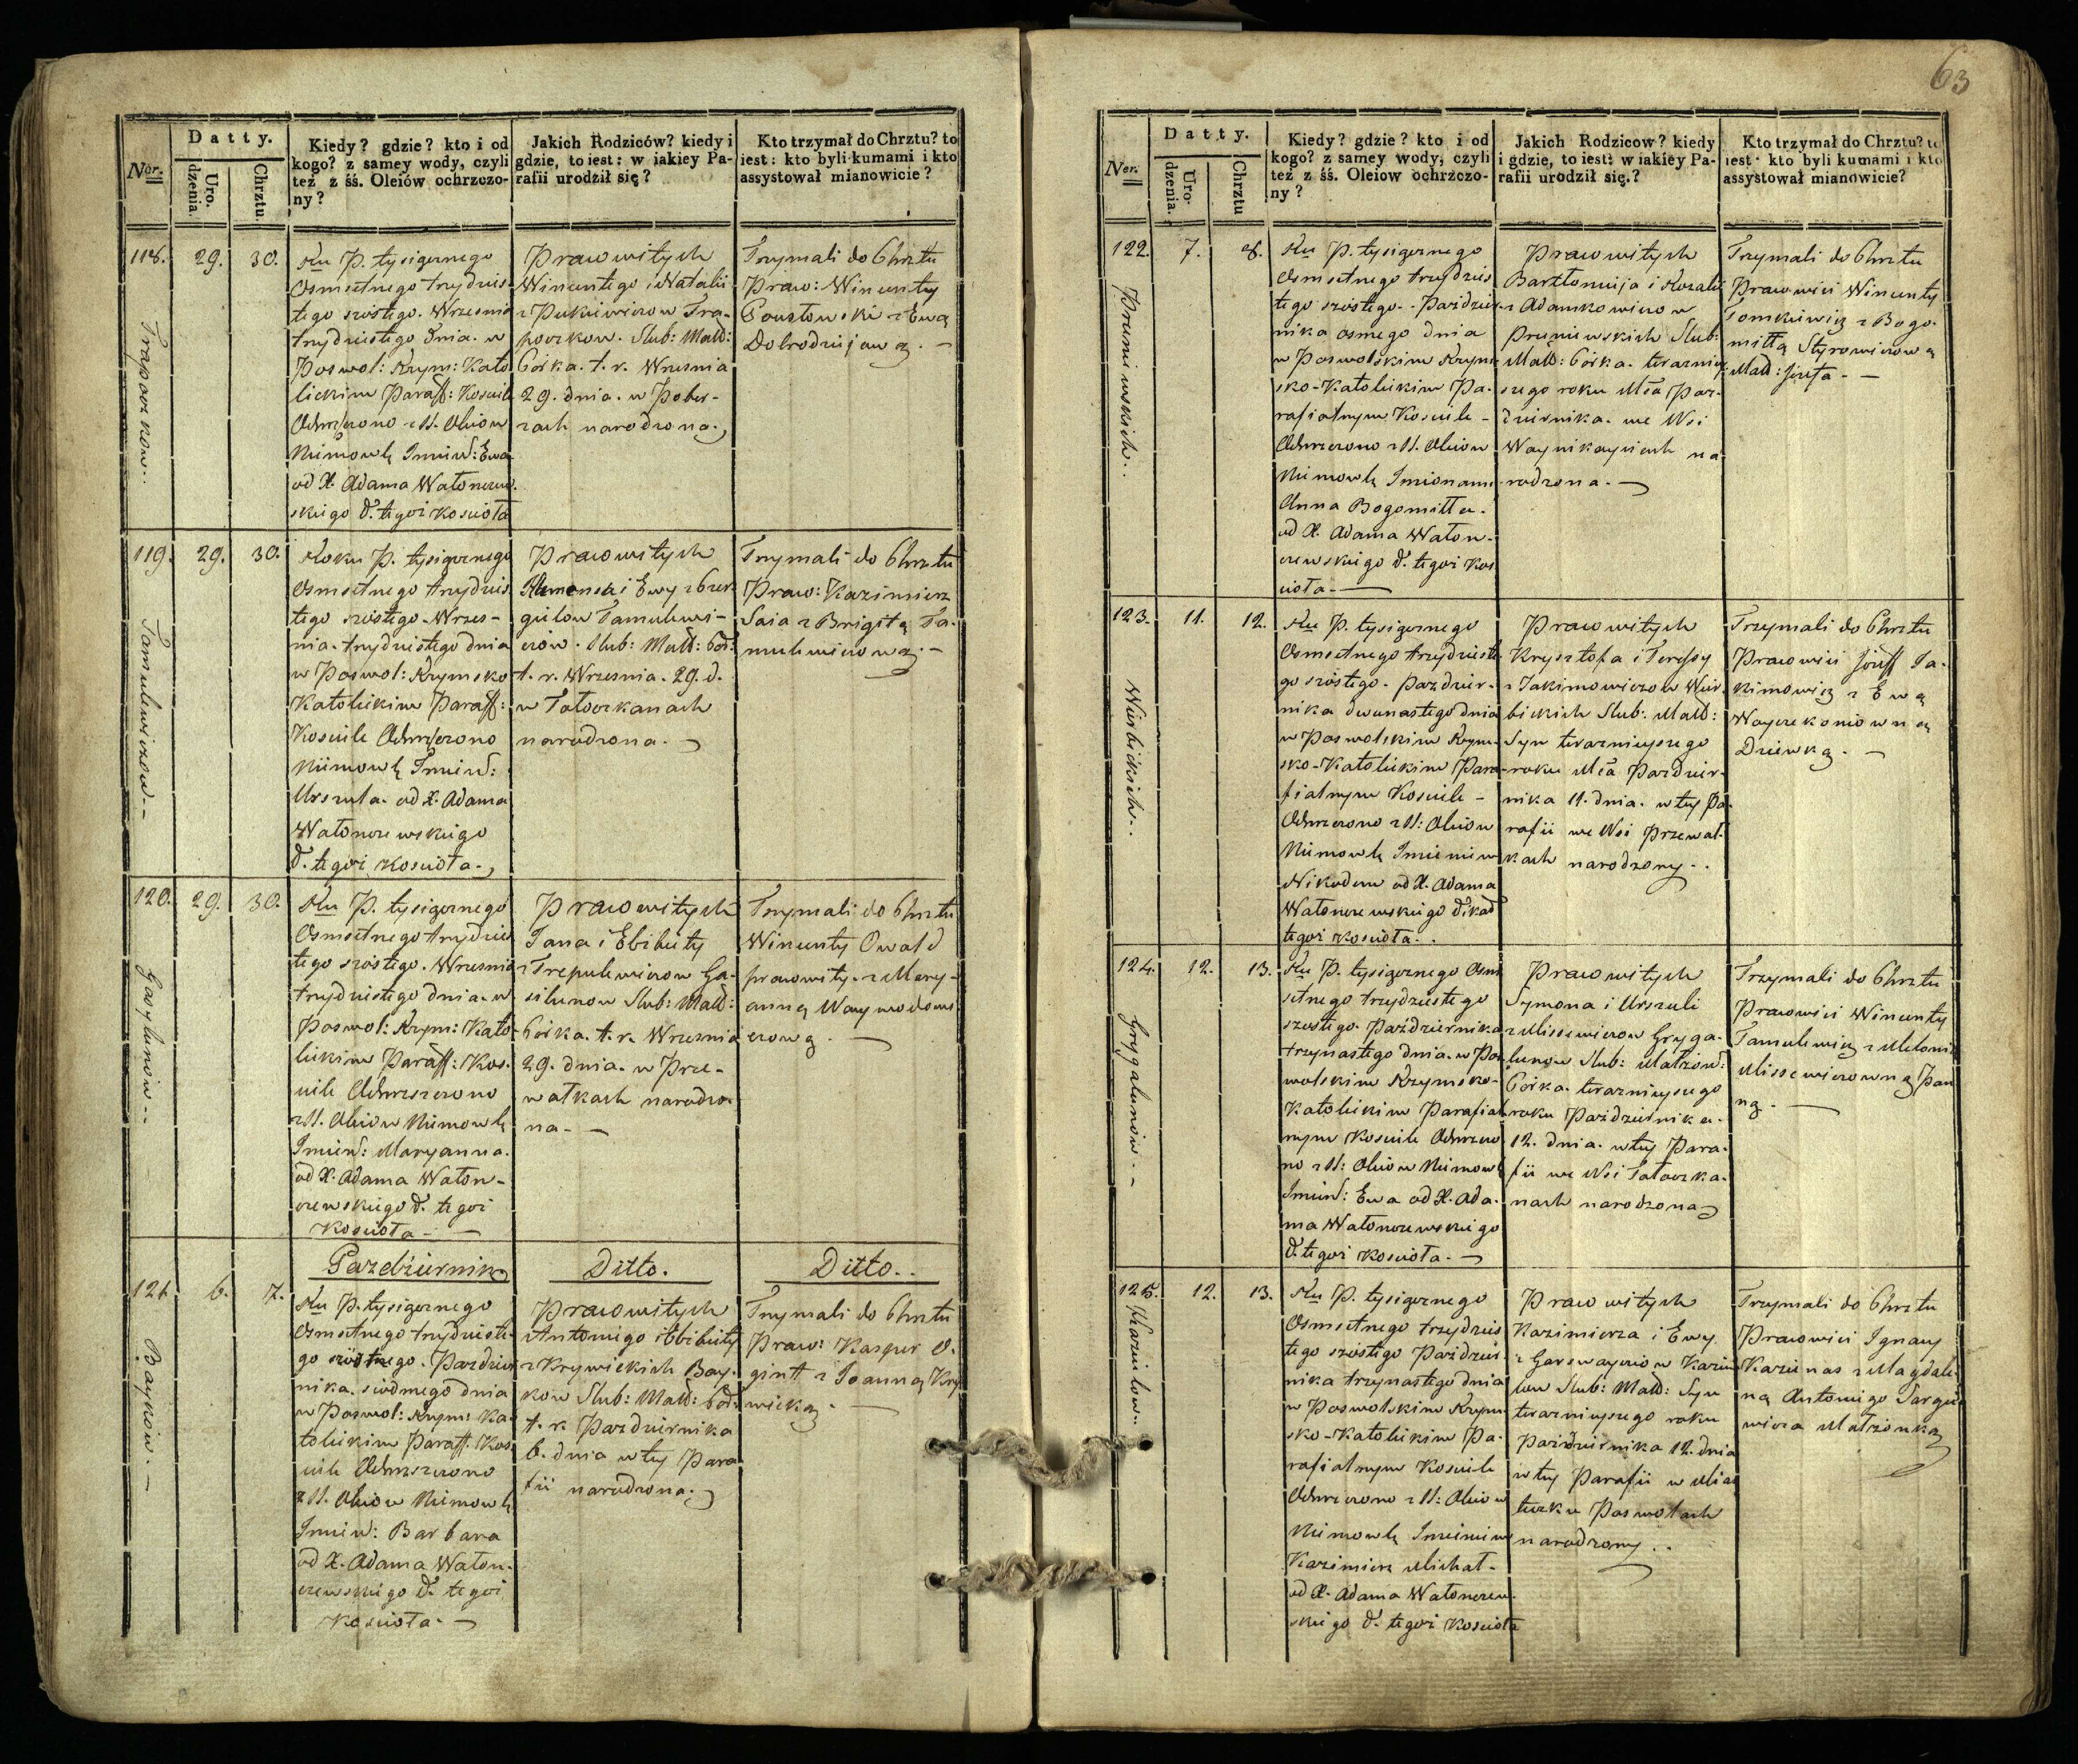 63
Datty.
Ner.
Uro.
dzenia.
Chrztu.
Kiedy? gdzie? kto i od
kogo? z samey wody, czyli
też z śś. Oleiów ochrzczo-
ny?
Jakich Rodziców? kiedy i
gdzie, to iest: w iakiey Pa-
rafii urodził się?
Kto trzymał do Chrztu? to
iest: kto byli kumami i kto
assystował mianowicie?
118. 29. 30.
Trapaczkow..
Ru P. tysiącznego
Osmsetnego trzydzies
tego szostego. Wrzesnia
trzydziestego dnia. w
Poswol: Rzym: Kato
lickim Paraff: Kosciele
Ochrzczono z SS. Oleiow
Niemowlę Imien: Ewa
od X. Adama Watoncew.
skiego d. tegoż Kosciola
Prawowitych
Wincentego i Natalii
z Pukiewiczow Tra-
paczkow. Slub: Malż:
Córka. t. r. Wrzesnia
29. dnia. w Pober-
zach narodzona.
Trzymali do Chrztu
Praw: Wincenty
Coustowski z Ewą
Dobrodziejową. -
119. 29. 30.
Tamulewiczow--
Roku P. tysiącznego
Osmsetnego trzydzies
tego szostego - Wrzes-
nia. trzydziestego dnia
w Poswol: Rzymsko
Katolickim Paraff:
Kosciele Ochrzczono
Niemowlę Imien:
Urszula. od X. Adama
Watonczewskiego
d. tegoż Kosciola.
Prawowitych
Klemensa i Ewy z Grer
gielow Tamulewi-
czow. Slub: Malż: Cór:
t. r. Wrzesnia. 29. d.
w Tatoczkanach
narodzona.
Trzymali do Chrztu
Praw: Kazimierz
Saia z Brigitą Ta-
mulewiczową. -
120. 29. 30.
Gasylunow--
Ru P. tysiącznego
Osmsetnego trzydzies
tego szostego. Wrzesnia
trzydziestego dnia. w
Poswol: Rzym: Kato-
lickim Paraff: Kos-
ciele Ochrzczono
z SS. Oleiow Niemowlę
Imien: Maryanna.
od X. Adama Waton-
czewskiego d. tegoż
Kosciola -
Prawowitych
Jana i Elżbiety
z Trepulewiczow Ga-
silunow Slub: Malż:
Córka. t. r. Wrzesnia
29. dnia. w Prze-
walkach narodzo-
na. -
Trzymali do Chrztu
Wincenty Owald
prawowity. z Mary-
anną Woywodow
czową. -
Pazdziernik Ditto. Ditto..
121. 6. 7.
Baykow. -
Ru P. tysiącznego
Osmsetnego trzydzieste-
go szostego. Pazdzier
nika. siodmego dnia
w Poswol: Rzym: Ka-
tolickim Paraff. Kos-
ciele Ochrzczono
z SS. Oleiow Niemowlę
Imien: Barbara
od X. Adama Waton-
czewskiego d. tegoż
Kosciola. -
Prawowitych
Antoniego i Elżbiety
z Krywickich Bay-
kow Slub: Malż: Cór:
t. r. Pazdziernika
6. dnia w tey Para
fii narodzona.
Trzymali do Chrztu
Praw: Kasper O-
gint z Joanną Kry
wicką. -
Datty.
Ner.
Uro-
dzenia.
Chrztu
Kiedy? gdzie? kto i od
kogo? z samey wody, czyli
też z śś. Oleiow ochrzczo-
ny?
Jakich Rodzicow? kiedy
i gdzie, to iest: w iakiey Pa-
rafii urodził się.?
Kto trzymał do Chrztu? to
iest: kto byli kumami i kto
assystował mianowicie?
122. 7. 8.
Pruniewskich..
Ru P. tysiącznego
Osmsetnego trzydzies
tego szostego. Pazdzier
nika osmego dnia
w Poswolskim Rzym
sko-Katolickim Pa-
rafialnym Kosciele -
Ochrzczono z SS. Oleiow
Niemowlę Imionami
Anna Bogomilla.
od X. Adama Waton-
czewskiego d. tegoż Kos
ciola. -
Prawowitych
Bartłomieja i Rozalii
z Adamkowiczow
Pruniewskich Slub:
Malż: Córka. teraznieу-
szego roku Mca Paz-
dziernika. we Wsi
Waynikayciach na
rodzona. -
Trzymali do Chrztu
Prawowici Wincenty
Tomkiewicz z Bogo-
millą Styrowiczową
Malż: Józefa. -
123. 11. 12.
Wierbickich..
Ru P. tysiącznego
Osmsetnego trzydzieste
go szostego. Pazdzier-
nika dwunastego dnia
w Poswolskim Rzym-
sko-Katolickim Para-
fialnym Kosciele -
Ochrzczono z SS: Oleiow
Niemowlę Imieniem
Nikodem od X. Adama
Watonczewskiego Wikar
tegoż Kosciola..
Prawowitych
Krysztofa i Teressy
z Jakimowiczow Wier-
bickich Slub: Malż:
Syn teraznieyszego
roku Mca Pazdzier-
nika 11. dnia. w tey Pa-
rafii we Wsi Przewal-
kach narodzony..
Trzymali do Chrztu
Prawowici Józeff Ja-
kimowicz z Ewą
Woyczekoniowną
Dziewką. -
124. 12. 13.
Grygalunow. -
Ru P. tysiącznego Osm
setnego trzydziestego
szostego. Pazdziernika
trzynastego dnia. w Pos
wolskim Rzymsko-
Katolickim Parafial
nym Kosciele Ochrzczo
no z SS: Oleiow Niemowlę
Imien: Ewa od X. Ada-
ma Watonczewskiego
d. tegoż Kosciola. -
Prawowitych
Symona i Urszuli
z Missewiczow Gryga-
lunow Slub: Malżon:
Córka. teraznieyszego
roku Pazdziernika.
12. dnia. w tey Para-
fii we Wsi Tatoczka-
nach narodzona
Trzymali do Chrztu
Prawowici Wincenty
Tamulewicz z Meloni
Missewiczowną Pan
ną. -
125. 12. 13.
Kazielow..
Ru P. tysiącznego
Osmsetnego trzydzies
tego szostego Pazdzier
nika trzynastego dnia
w Poswolskim Rzym
sko-Katolickim Pa-
rafialnym Kosciele
Ochrzczono z SS: Oleiow
Niemowlę Imieniem
Kazimierz Michał-
od X. Adama Watonczew-
skiego d. tegoż Kosciola
Prawowitych
Kazimierza i Ewy
z Garswayciow Kazie
low Slub: Malż: Syn
teraznieyszego roku
Pazdziernika 12. dnia
w tey Parafii w Mias
teczku Poswolach
narodzony..
Trzymali do Chrztu
Prawowici Ignacy
Kazienas z Magdale-
ną Antoniego Sargie
wicza Małżonką